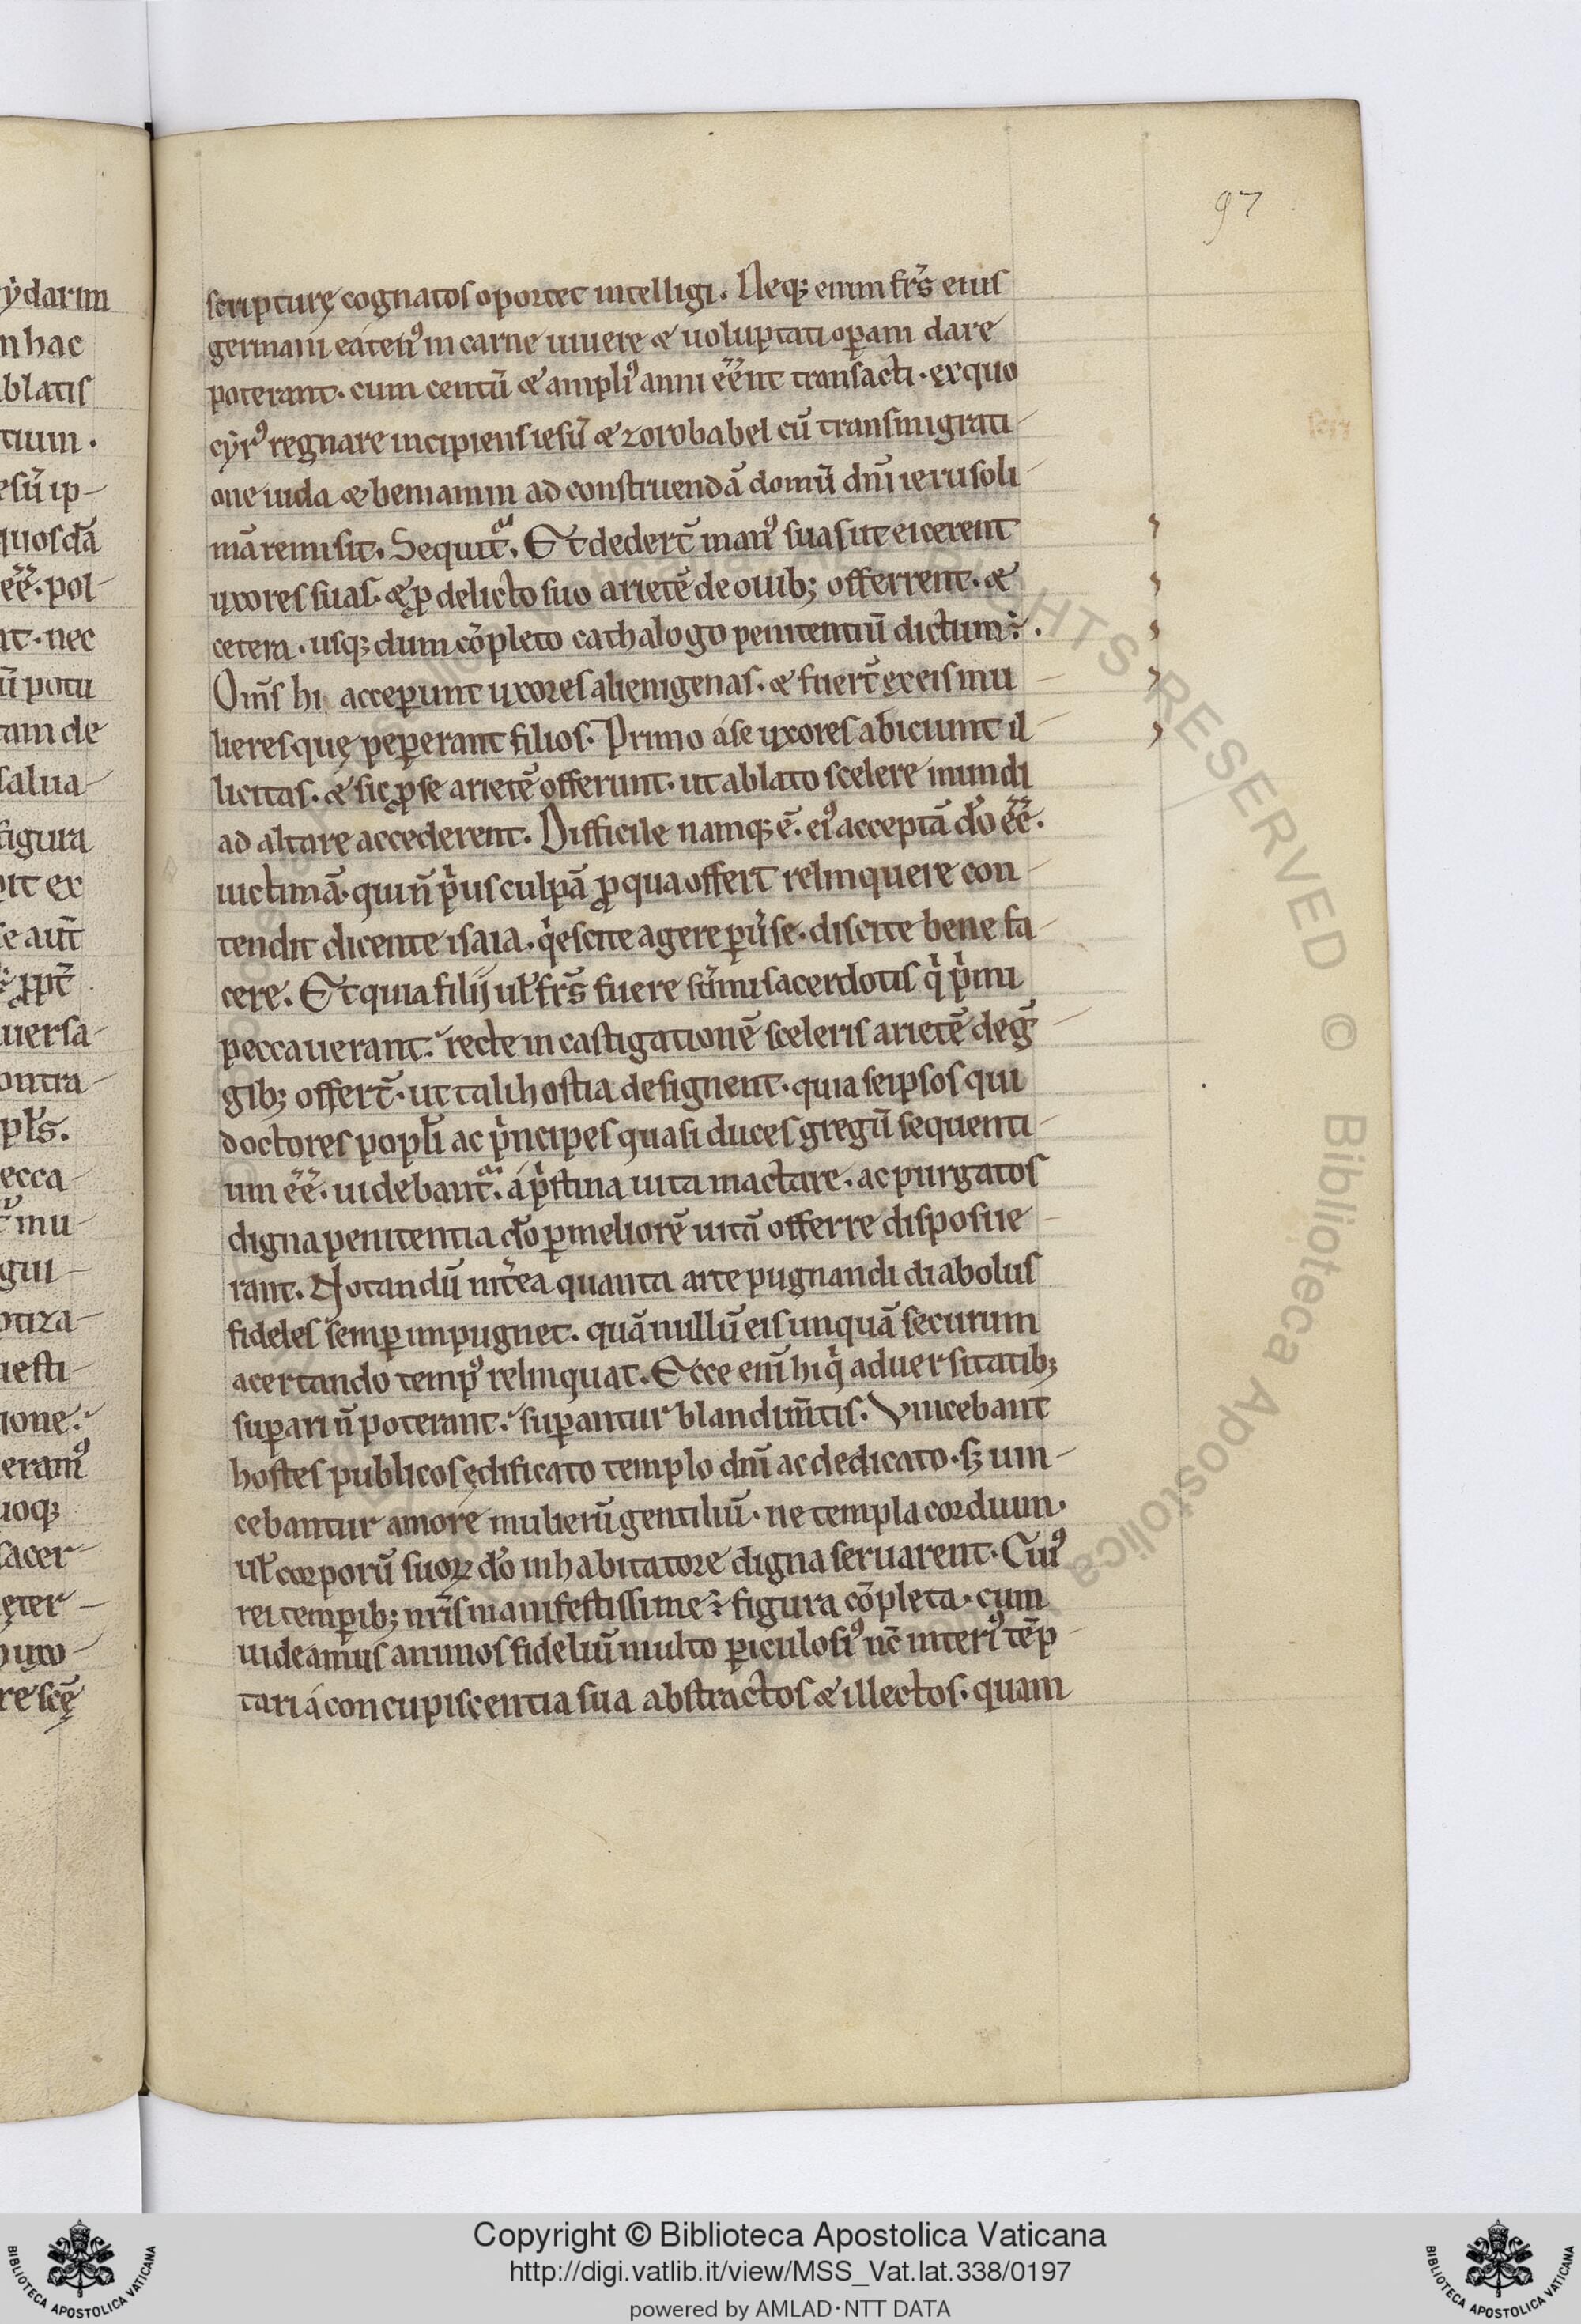 97
scripturę cognatos oportet intelligi. Neq; enim fr̄s eius
germani eáten⁹ in carne uiuere & uoluptati oꝑam dare
poterant. cum centū & ampli⁹ anni eēēnt transacti. ex quo
cẏr⁹ regnare incipiens iesū & zorobabel cū transmigrati-
one iuda & beniamin ad construendā domū dn̄i ierusoli-
mā remisit. Sequit᷒. Et dedert̄ man⁹ suas ut eicerent
uxores suas. & ꝓ delicto suo arietē de ouib; offerrent. &
cetera. usq; dum cōpleto cathalogo penitentiū dictum ÷.
Om̄s hi acceꝑunt uxores alienigenas. & fuert̄ ex eis mu-
lieres quę peꝑerant filios. Primo á se uxores abiciunt il-
licitas. & sic ꝓ se arietē offerunt. ut ablato scelere mundi
ad altare accederent. Difficile namq; ē. ei⁹ acceptā dō eē̄.
uictimā. qui n̄ pͥus culpā ꝓ qua offert relinquere con-
tendit dicente isaia. qͥescite agere ꝑu̾se. discite bene fa-
cere. Et quia filij ul̄ fr̄s fuere sūmi sacerdotis qͥ pͥmi
peccauerant. recte in castigationē sceleris arietē de g̅-
gib; offert̄. ut tali hostia designent. quia seipsos qui
doctores popl̄i ac pͥncipes quasi duces gregū sequenti-
um eē̄. uidebant᷒. á pͥstina uita mactare. ac purgatos
digna penitentia dō ꝑ meliorē uitā offerre disposue-
rant. Notandū int̾ea quanta arte pugnandi diabolus
fideles semꝑ impugnet. quā nullū eis unquā securum
a certando temp⁹ relinquat. Ecce eni̅ hi qͥ aduersitatib;
suꝑari n̄ poterant. suꝑantur blandim̄tis. Vincebant
hostes publicos ędificato templo dn̄i ac dedicato. s; uin-
cebantur amore mulierū gentiliū. ne templa cordium.
ul̄ corporū suoꝝ dō inhabitatore digna seruarent. Cui⁹
rei temꝑib; nr̄is manifestissime ÷ figura cōpleta. cum
uideamus animos fideliū multo ꝑiculosi⁹ nc̄ interi⁹ tēp-
tari á concupiscentia sua abstractos & illectos. quam
Copyright © Biblioteca Apostolica Vaticana
http://digi.vatlib.it/view/MSS_Vat.lat.338/0197
powered by AMLAD·NTT DATA